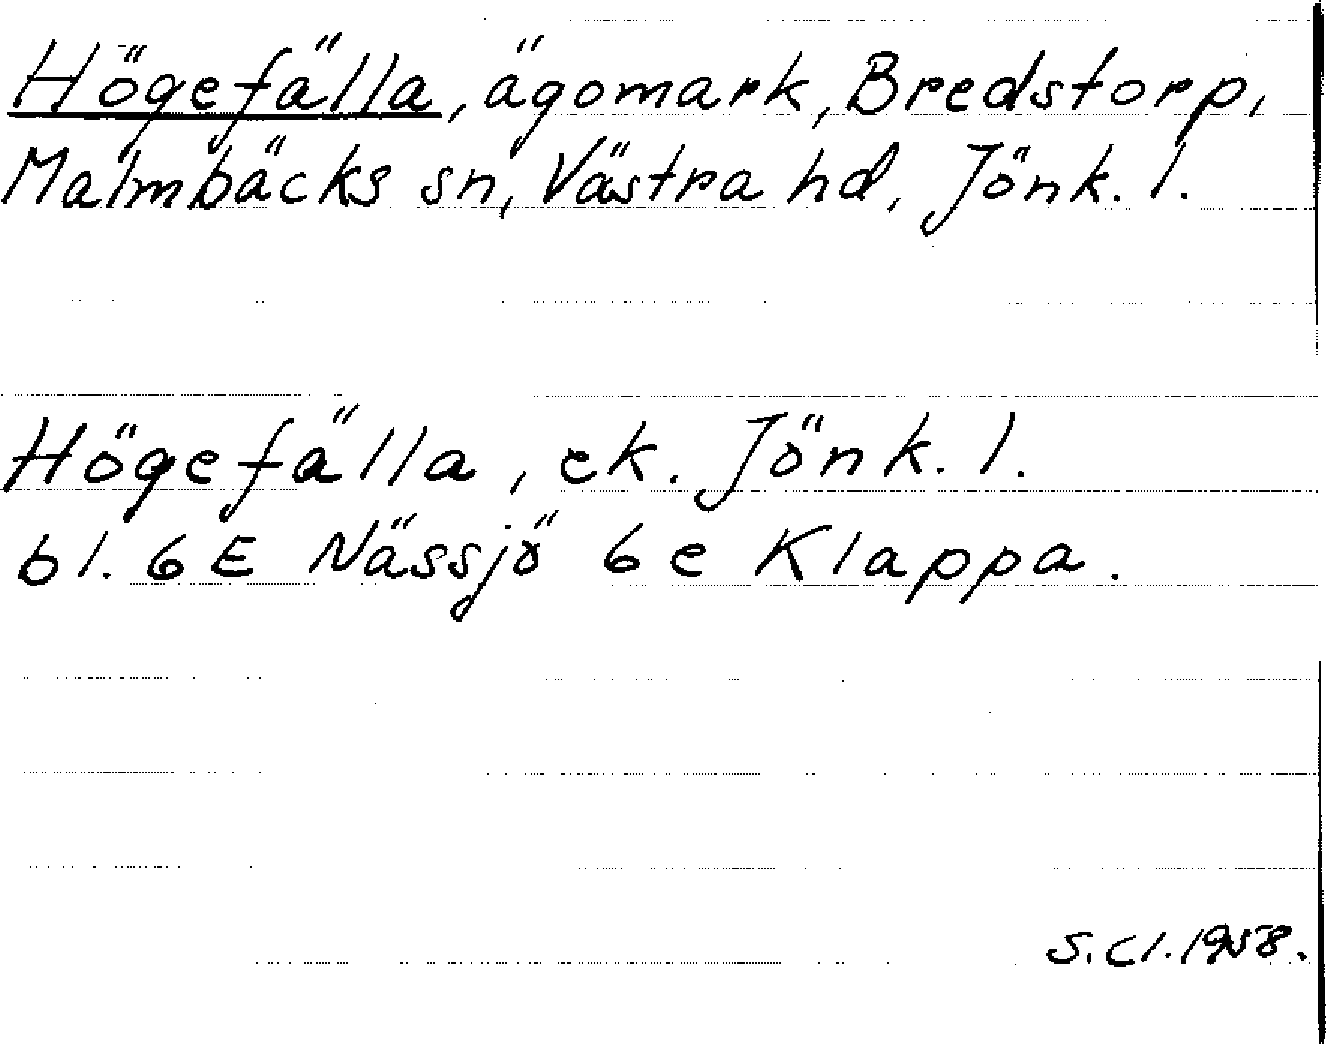 Högefälla, ägomark, Bredstorp,
Malmbäcks sn, Västra hd, Jönk. l.
Högefälla, ek. Jönk. l.
bl. 6E Nässjö 6e Klappa.
S. Cl. 1958.